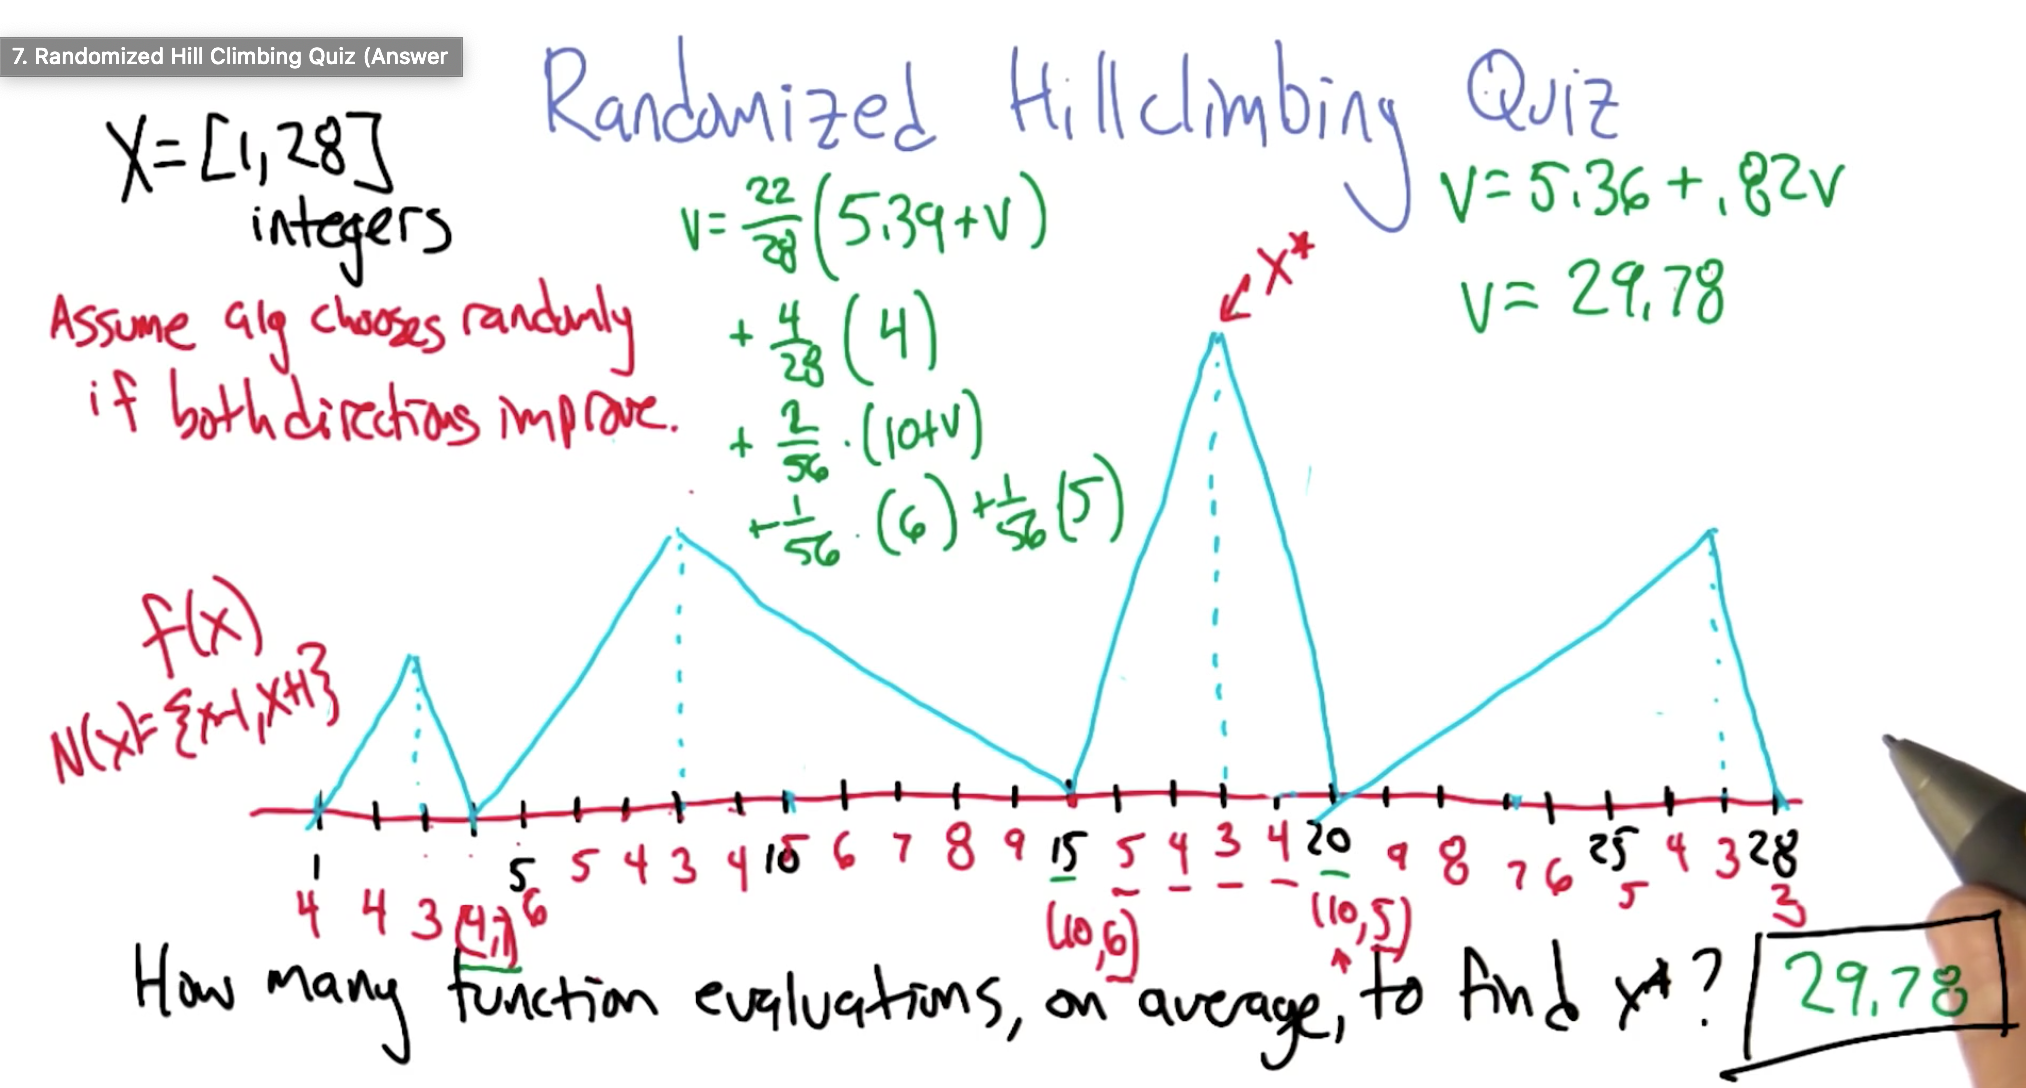 7. Randomized Hill Climbing Quiz (Answer
Randomized Hillclimbing Quiz
X=[1,28]
integers
Assume alg chooses randomly
if both directions improve.
v= 22/28 (5.39+v)
+ 4/28 (4)
+ 2/56 · (10+v)
+ 1/56 · (6) + 1/56 (5)
v=5.36+.82v
v= 29.78
x*
f(x)
N(x)={x-1,x+1}
1 5 5 4 3 4 10 5 6 7 8 9 15 5 4 3 4 20 9 8 7 6 25 4 3 28
4 4 3 (4,7) 6 (10,6) (10,5) 5 3
How many function evaluations, on average, to find x*? 29.78